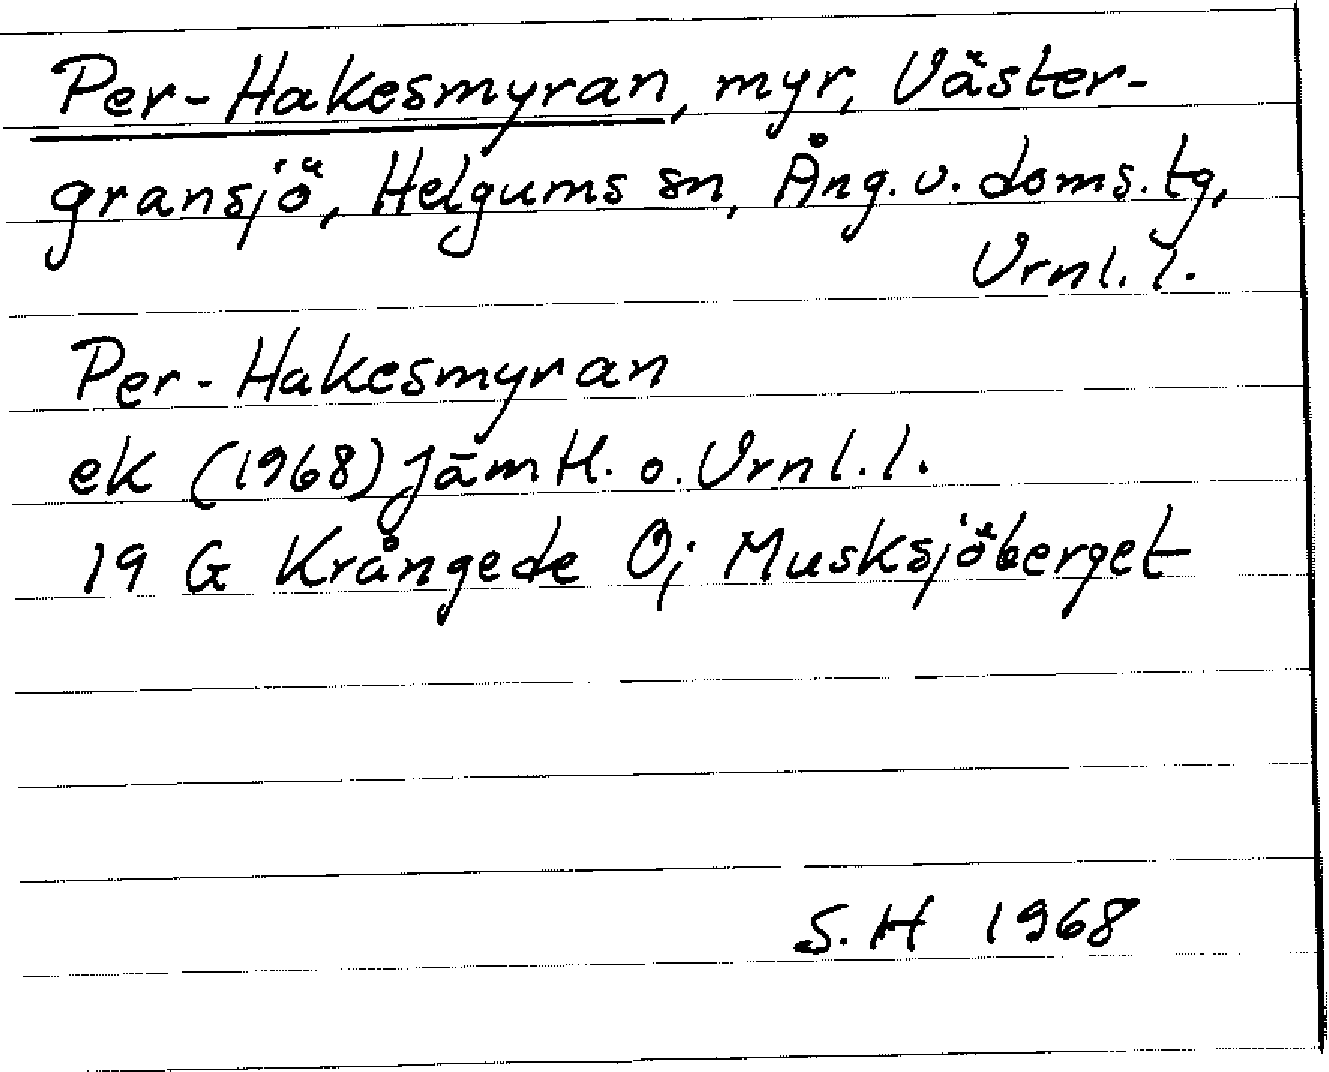 Per-Hakesmyran, myr, Väster-
gransjö, Helgums sn, Ång. v. doms. tg,
Vrnl. l.
Per-Hakesmyran
ek (1968) Jämtl. o. Vrnl. l.
19 G Krångede O; Musksjöberget
S. H 1968